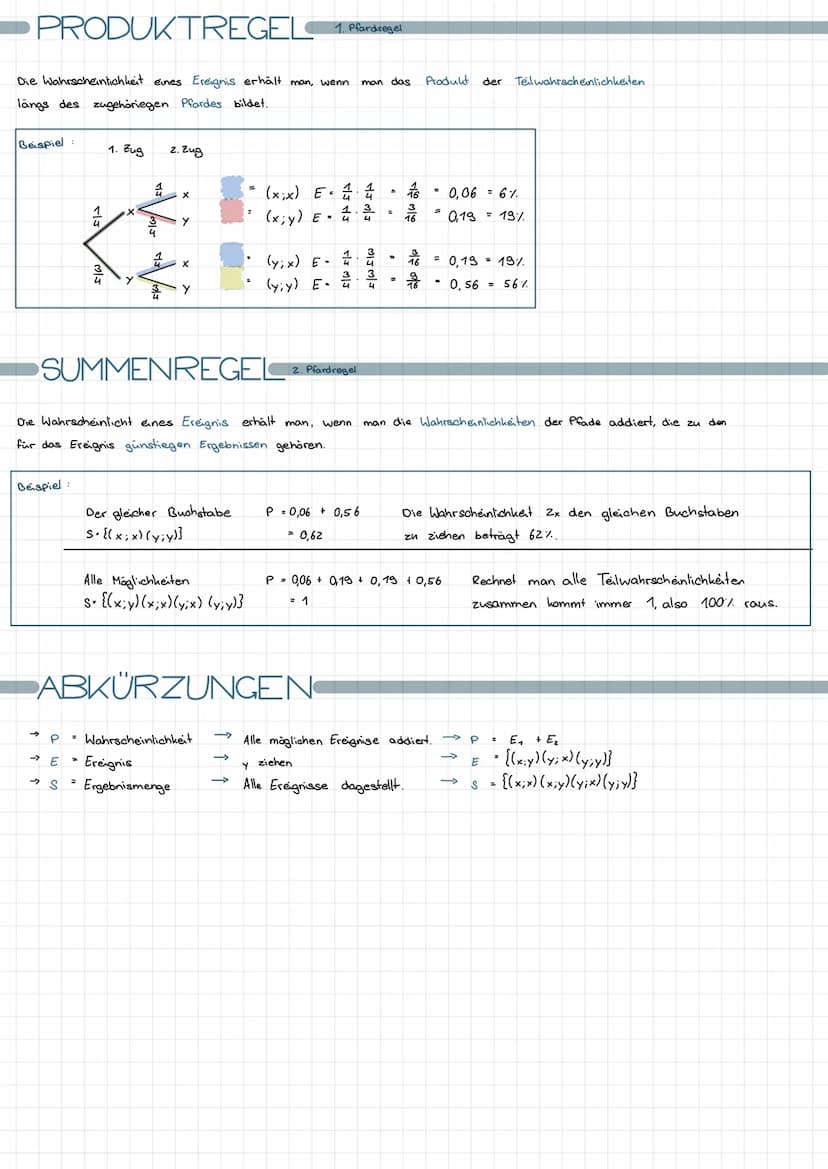 PRODUKTREGEL 1. Pfardregel
Die Wahrscheinlichkeit eines Ereignis erhält man, wenn man das Produkt der Teilwahrscheinlichkeiten
längs des zugehöriegen Pfardes bildet.
Beispiel :
1. Zug 2. Zug
1/4 x 1/4 x = (x;x) E = 1/4 · 1/4 = 1/16 = 0,06 = 6%
3/4 y = (x;y) E = 1/4 · 3/4 = 3/16 = 0,19 = 19%
3/4 y 1/4 x = (y;x) E = 1/4 · 3/4 = 3/16 = 0,19 = 19%
3/4 y = (y;y) E = 3/4 · 3/4 = 9/16 = 0,56 = 56%
SUMMENREGEL 2. Pfardregel
Die Wahrscheinlicht eines Ereignis erhält man, wenn man die Wahrscheinlichkeiten der Pfade addiert, die zu den
für das Ereignis günstiegen Ergebnissen gehören.
Beispiel :
Der gleicher Buchstabe P = 0,06 + 0,56 Die Wahrscheinlichkeit 2x den gleichen Buchstaben
S = {(x;x)(y;y)} = 0,62 zu ziehen beträgt 62%.
Alle Möglichkeiten P = 0,06 + 0,19 + 0,19 + 0,56 Rechnet man alle Teilwahrscheinlichkeiten
S = {(x;y)(x;x)(y;x) (y;y)} = 1 zusammen kommt immer 1, also 100% raus.
ABKÜRZUNGEN
→ P = Wahrscheinlichkeit → Alle möglichen Ereignise addiert. → P = E₁ + E₂
→ E = Ereignis → y ziehen → E = {(x;y)(y;x)(y;y)}
→ S = Ergebnismenge → Alle Ereignisse dagestellt. → S = {(x;x)(x;y)(y;x)(y;y)}